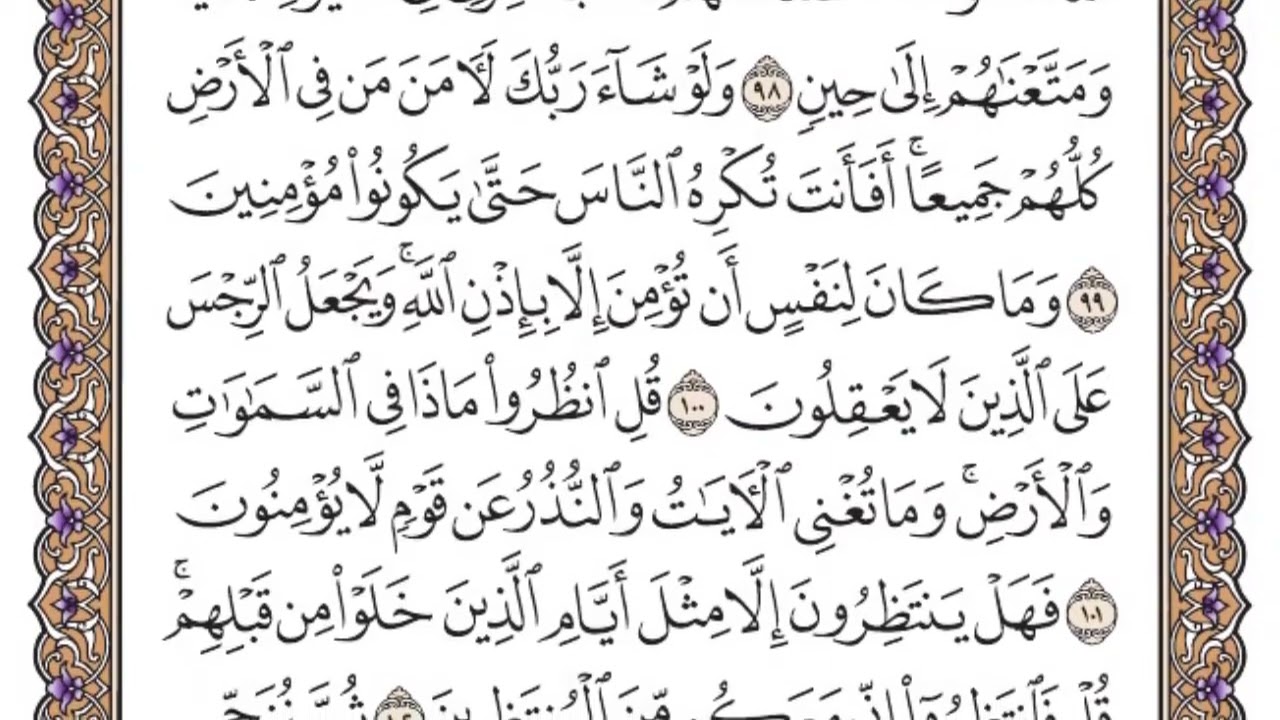 وَمَتَّعْنَٰهُمْ إِلَىٰ حِينٍ ٩٨ وَلَوْ شَآءَ رَبُّكَ لَءَامَنَ مَن فِى ٱلْأَرْضِ
كُلُّهُمْ جَمِيعًا ۚ أَفَأَنتَ تُكْرِهُ ٱلنَّاسَ حَتَّىٰ يَكُونُوا۟ مُؤْمِنِينَ
٩٩ وَمَا كَانَ لِنَفْسٍ أَن تُؤْمِنَ إِلَّا بِإِذْنِ ٱللَّهِ ۚ وَيَجْعَلُ ٱلرِّجْسَ
عَلَى ٱلَّذِينَ لَا يَعْقِلُونَ ١٠٠ قُلِ ٱنظُرُوا۟ مَاذَا فِى ٱلسَّمَٰوَٰتِ
وَٱلْأَرْضِ ۚ وَمَا تُغْنِى ٱلْءَايَٰتُ وَٱلنُّذُرُ عَن قَوْمٍ لَّا يُؤْمِنُونَ
١٠١ فَهَلْ يَنتَظِرُونَ إِلَّا مِثْلَ أَيَّامِ ٱلَّذِينَ خَلَوْا۟ مِن قَبْلِهِمْ ۚ
قُلْ فَٱنتَظِرُوٓا۟ إِنِّى مَعَكُم مِّنَ ٱلْمُنتَظِرِينَ ١٠٢ ثُمَّ نُنَجِّى